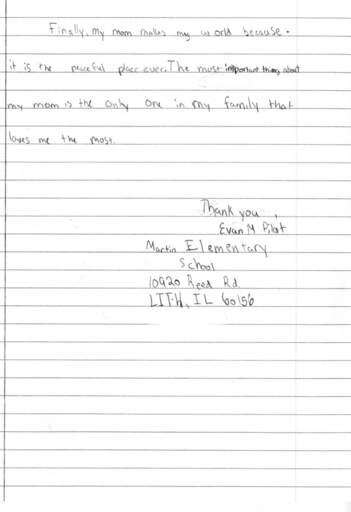 Finally, my mom makes my world because.
it is the peaceful place ever. The most important thing about
my mom is the only one in my family that
loves me the most.
Thank you,
Evan M Pilot
Martin Elementary
School
10920 Reed Rd
LITH, IL 60156